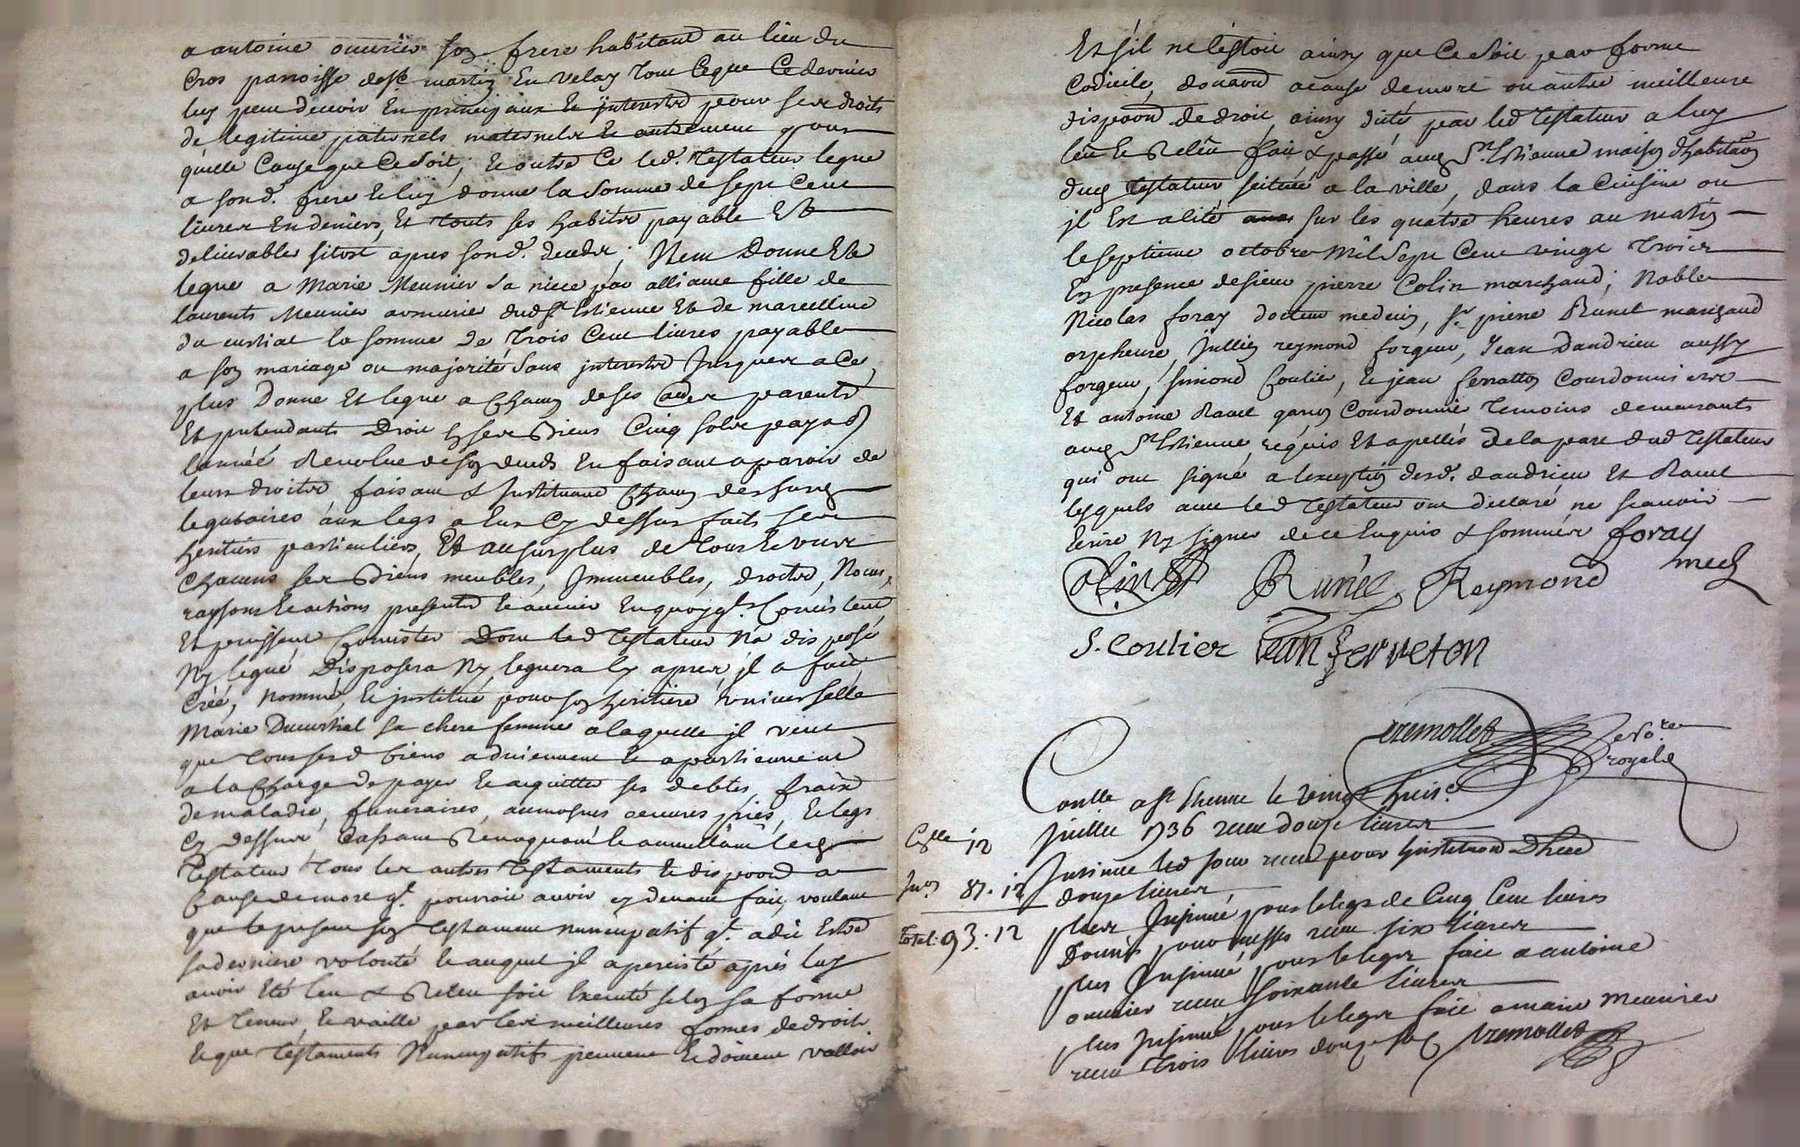 a antoine ouvrier son frere habitant au lieu du
Cros parroisse de st martin En velay tout Ceque Ce dernier
luy peut devoir En principaux Et jnterestz pour ses droits
de legitime paternels maternelz Et autrement pour
quelle Cause que Ce soit, Et outre Ce led. Testateur legue
a sond. frere Et luy donne la somme de sept Cent
livres En deniers, Et touts ses habitz payable Et
delivrables sitost apres sond. decedz; Item Donne Et
legue a Marie Meunier sa niece par alliance fille de
laurents Meunier armurier dud st Estienne Et de marcelline
du curtial la somme de Trois Cent livres payable
a son mariage ou majorité sans jnterestz Jusques a Ce,
plus Donne Et legue a Chacun de ses aües parents
Et pretendants Droit En ses Biens Cinq solz payab
lannéé Revolue de son decedz En faisant aparoir de
leurs droitz faisant & Instituant Chacun des susn
legataires aux legs a Eux Cy dessus faits ses
heritiers particuliers, Et au surplus de tous Et uns
Chacuns ses Biens meubles, Immeubles, droitz, Noms,
raysons Et actions presentz Et avenir En quoy qls Consistent
Et puissent Consister Dont led Testateur Na disposé
Ny legué, Disposera Ny leguera Cy apres, jl a fait
Créé, nommé, Et jnstitué pour son heritiere universelle
Marie Ducurtial sa chere femme a laquelle jl veut
que tous sesd biens adviennent Et apartiennent
a la Charge de payer Et acquitter ses debtes, fraix
de maladie, funeraires, aumosnes oeuvres pies, Et legs
Cy dessus, Cassant Revoquant Et annullant led
Testateur tous les autres Testaments Et dispoõns a
Cause de mort ql. pourroit avoir cy devant fait, voulant
que le present son Testament nuncupatif ql. a dit Estre
sa derniere volonté Et auquel jl a persisté après luy
avoir Eté leu & Releu soit Executé selon sa forme
Et teneur, Et vaille par les meilleures formes de droit
Et que testaments Nuncupatifs peuvent Et doivent valloir
Et s'il ne l'estoit ainsy que Ce soit par forme
Codicile, donaõn acause de mort ou autre meilleure
dispoõn de droit, ainsy dicté par led Testateur a luy
leu Et Releu fait & passé aud St. Estienne maison d'habitaõn
dud Testateur scituéé a la ville, dans la Cuisine ou
jl Est alité sur les quatre heures au matin
le septieme octobre Mil Sept Cent vingt Trois
En presence de sieur pierre Colin marchand; Noble
Nicolas foray docteur medecin, sr. pierre Runel marchand
orpheuvre, Jullien reymond forgeur, Jean Dandrieu aussy
forgeur, simond Coulier, Et jean serveton Courdonnier
Et antoine Ravel garçon Courdonnier Temoins demeurants
aud St. Estienne, requis Et apellés de la part dud Testateur
qui ont signé a lexception desd. dandrieu Et Ravel
lesquels avec led Testateur ont declaré ne scavoir
Ecrire Ny signer de ce Enquis & sommés foray
Colin Runel Reymond med
S. Coulier Jean Serveton
Tremollet No.re
royal
Conllé a st Etienne le vingt huit
Juillet 1736 receu douze livres
Csle 12
Insinué led jour receu pour Linstitution Dhered
douze livres
Ins 81. 12
plus Insinué pour le legs de Cinq Cent livres
Total: 93. 12
Donnés pour messes receu six livres
plus Insinué pour le legs fait a antoine
ouvrier receu soixante livres
plus Insinué pour le legs fait a marie meunier
receu trois livres douze sols Tremollet